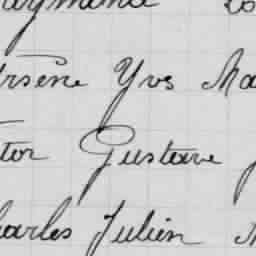 aymond
rsène Yves Ma
tor Gustave
harles Julien